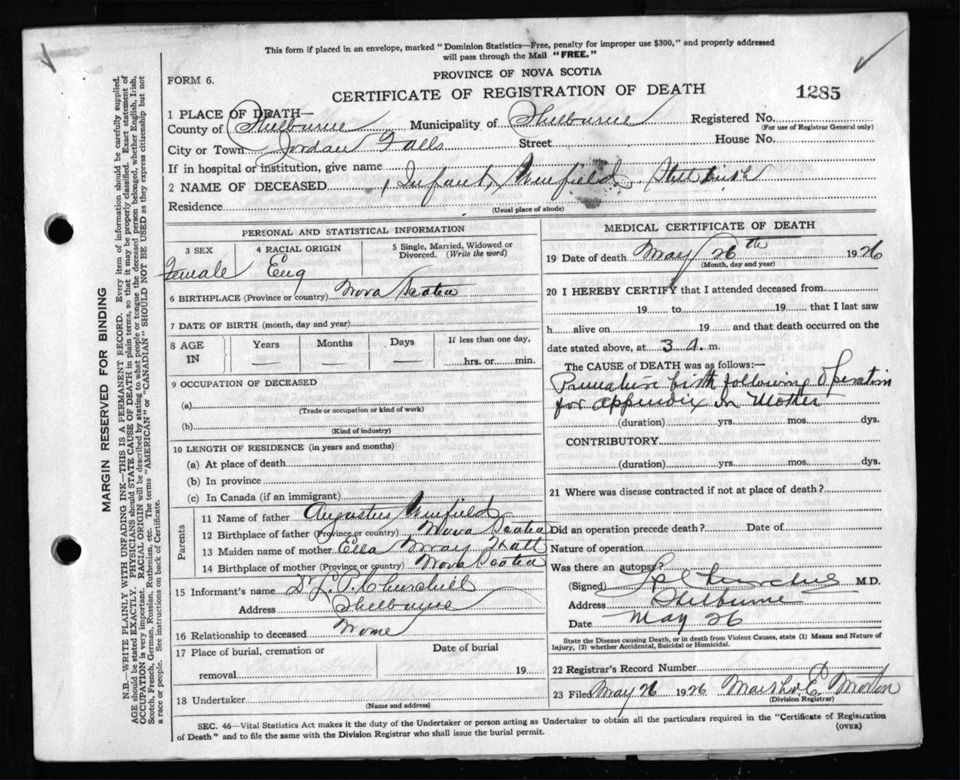 This form if placed in an envelope, marked "Dominion Statistics—Free, penalty for improper use $300," and properly addressed
will pass through the Mail "FREE."
PROVINCE OF NOVA SCOTIA
FORM 6.
CERTIFICATE OF REGISTRATION OF DEATH
1285
1 PLACE OF DEATH—
County of Shelburne Municipality of Shelburne Registered No.
(For use of Registrar General only)
City or Town Jordan Falls Street House No.
If in hospital or institution, give name
2 NAME OF DECEASED Infant
Residence
(Usual place of abode)
PERSONAL AND STATISTICAL INFORMATION
3 SEX 4 RACIAL ORIGIN 5 Single, Married, Widowed or Divorced. (Write the word)
Female Eng
6 BIRTHPLACE (Province or country) Nova Scotia
7 DATE OF BIRTH (month, day and year)
8 AGE IN Years Months Days If less than one day,
— — — hrs. or min.
9 OCCUPATION OF DECEASED
(a)
(Trade or occupation or kind of work)
(b)
(Kind of industry)
10 LENGTH OF RESIDENCE (in years and months)
(a) At place of death
(b) In province
(c) In Canada (if an immigrant)
Parents
11 Name of father Augustus
12 Birthplace of father (Province or country) Nova Scotia
13 Maiden name of mother Ella May
14 Birthplace of mother (Province or country) Nova Scotia
15 Informant's name Dr L. P. Churchill
Address Shelburne
16 Relationship to deceased None
17 Place of burial, cremation or removal Date of burial
19
18 Undertaker
(Name and address)
MEDICAL CERTIFICATE OF DEATH
19 Date of death May 26th 1926
(Month, day and year)
20 I HEREBY CERTIFY that I attended deceased from
19 to 19 that I last saw
h alive on 19 and that death occurred on
date stated above, at 3 A. m.
The CAUSE OF DEATH was as follows:—
Premature birth following operation
for appendix in Mother
(duration) yrs. mos. dys.
CONTRIBUTORY
(duration) yrs. mos. dys.
21 Where was disease contracted if not at place of death?
Did an operation precede death? Date of
Nature of operation
Was there an autopsy?
(Signed) L P Churchill M.D.
Address Shelburne
Date May 26
State the Disease causing Death, or in death from Violent Causes, state (1) Means and Nature of
Injury, (2) whether Accidental, Suicidal or Homicidal.
22 Registrar's Record Number
23 Filed May 26 1926 E. Morton
(Division Registrar)
SEC. 46—Vital Statistics Act makes it the duty of the Undertaker or person acting as Undertaker to obtain all the particulars required in the "Certificate of Registration
of Death" and to file the same with the Division Registrar who shall issue the burial permit.
(OVER)
MARGIN RESERVED FOR BINDING
N.B.—WRITE PLAINLY WITH UNFADING INK—THIS IS A PERMANENT RECORD. Every item of information should be carefully supplied.
AGE should be stated EXACTLY. PHYSICIANS should STATE CAUSE OF DEATH in plain terms, so that it may be properly classified. Exact statement of
OCCUPATION is very important. RACIAL ORIGIN will be described by stating to what people or tongue the deceased person belonged, whether English, Irish,
Scotch, French, German, Russian, Ruthenian, etc. The terms "AMERICAN" or "CANADIAN" SHOULD NOT BE USED as they express citizenship but not
a race or people. See instructions on back of Certificate.